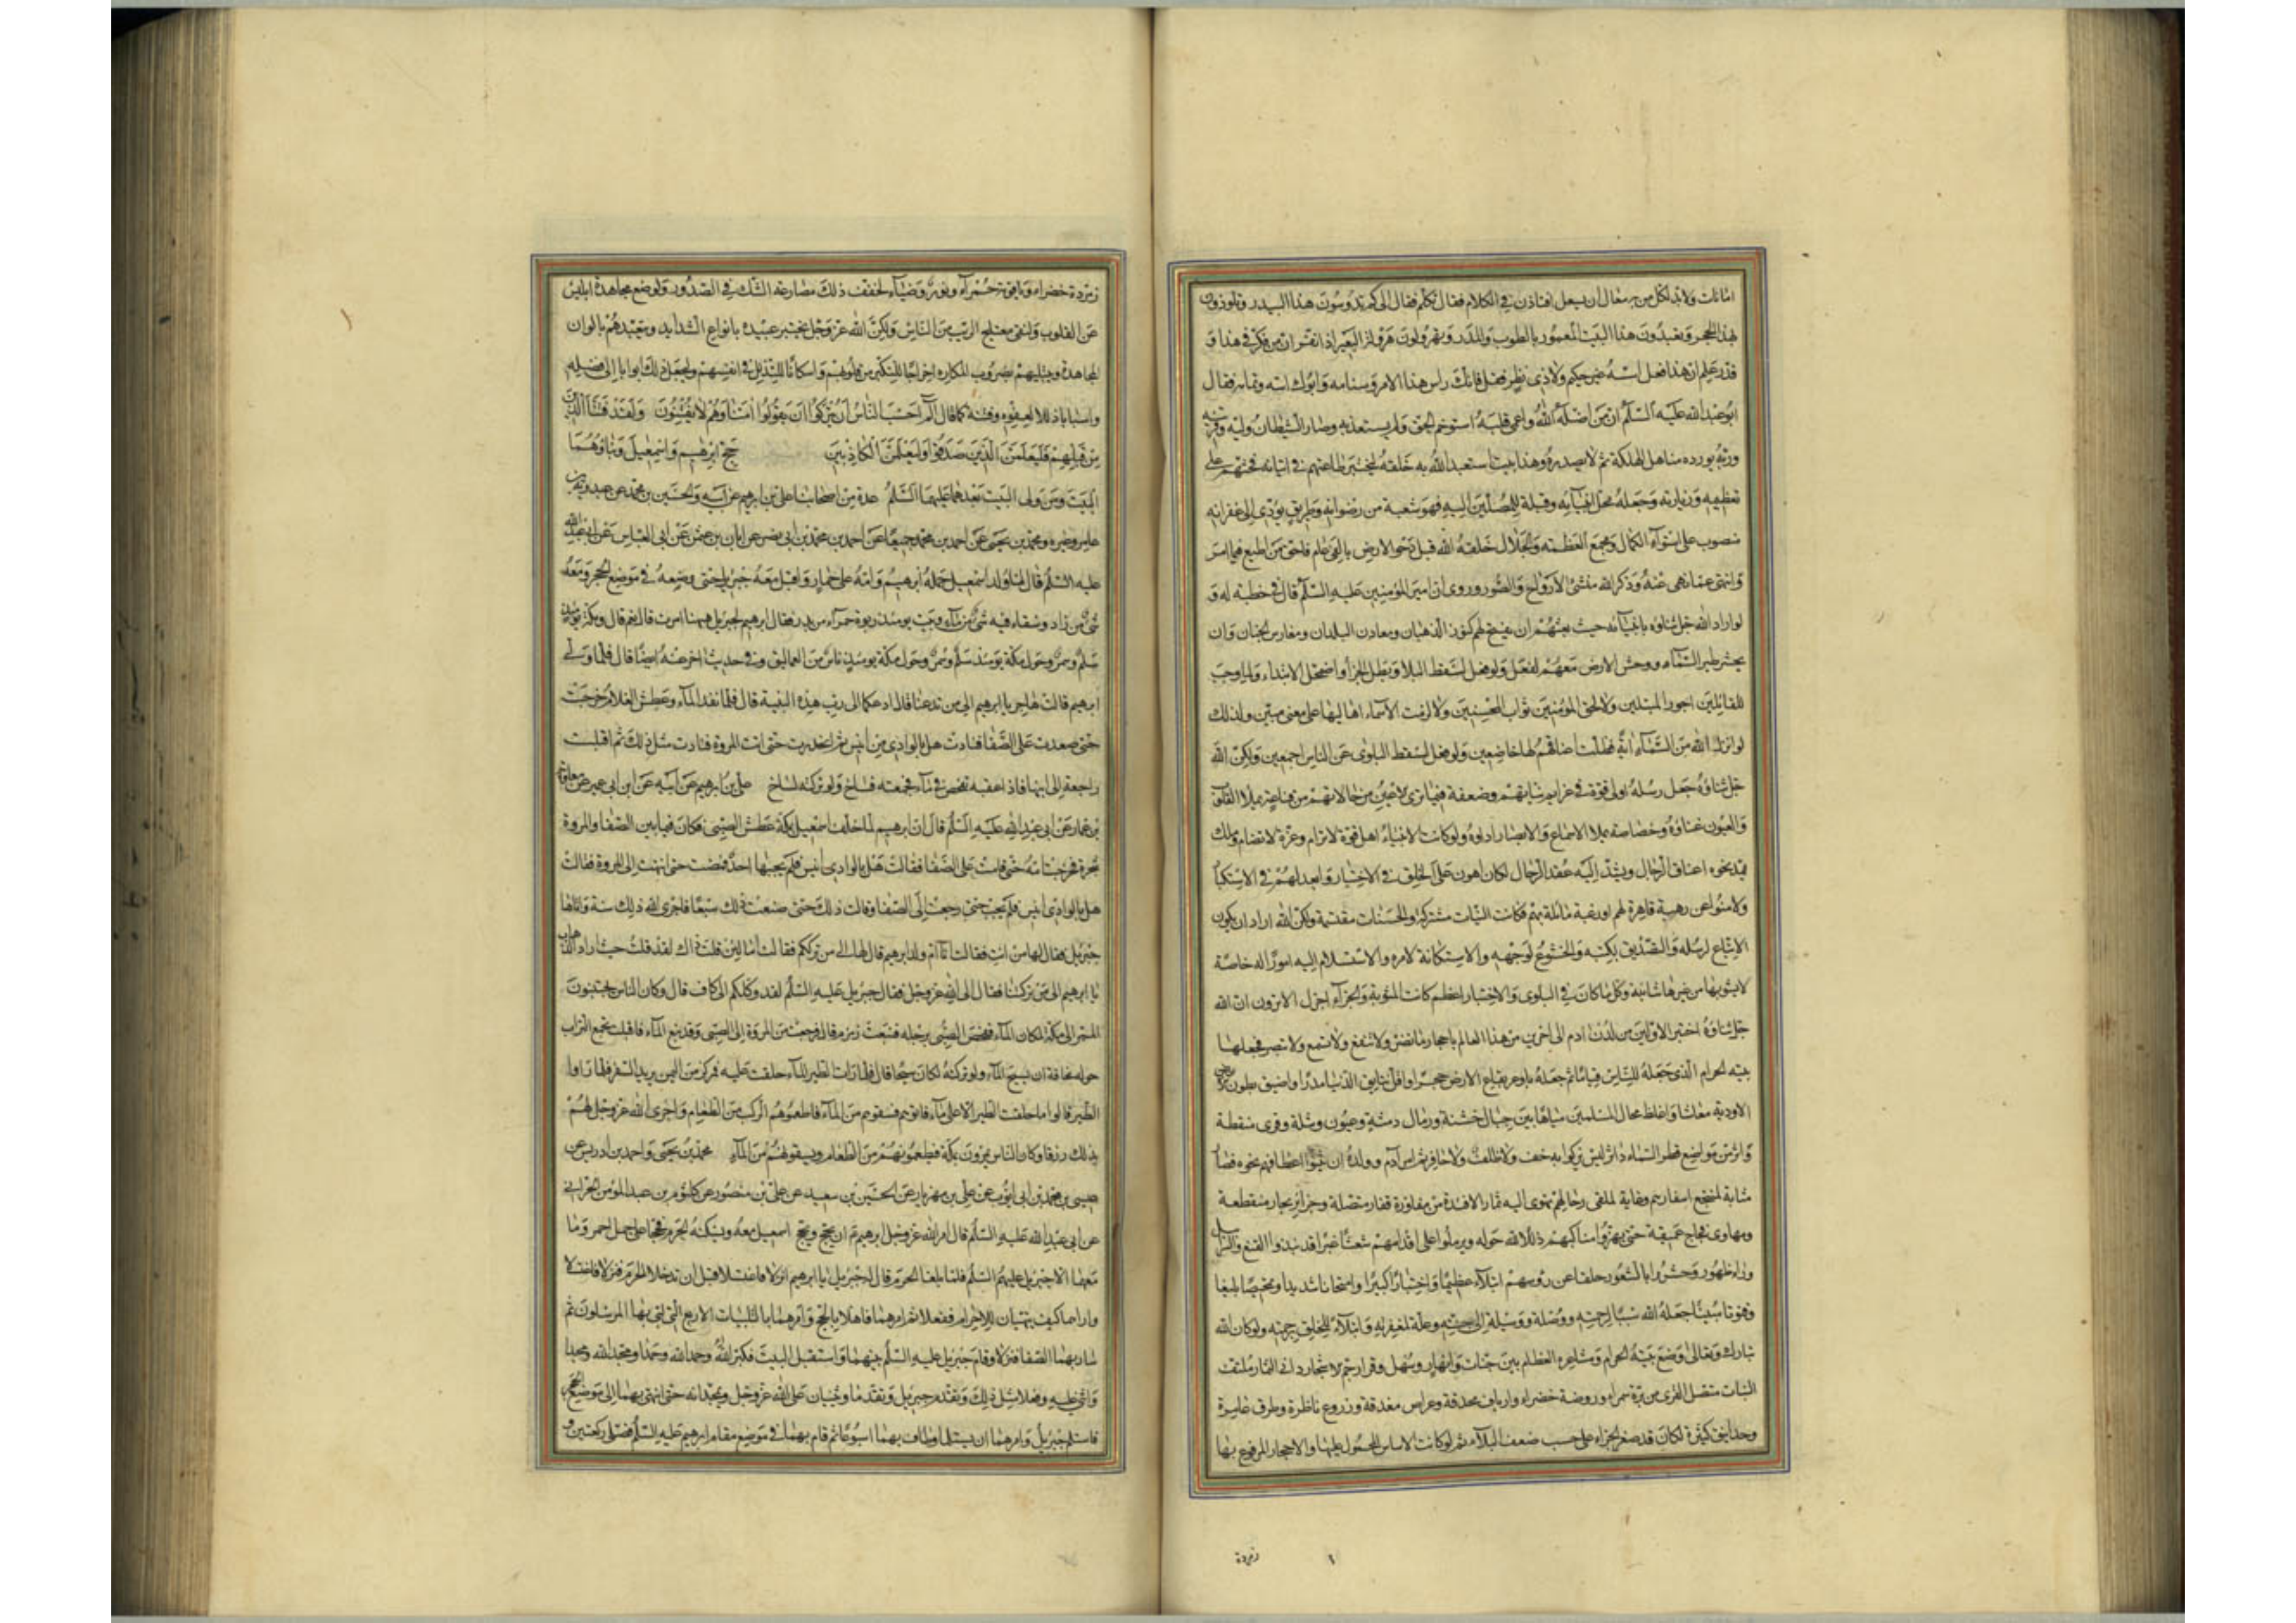 امانات ولابد لكل من به سعال ان يسعل افتاذن في الكلام فقال تكلم فقال الى كم تدوسون هذا البيدر وتلوذون
بهذا الحجر وتعبدون هذا البيت المعمور بالطوب والمدر وتهرولون هرولة البعير اذا نفر ان من فكر في هذا و
قدر علم ان هذا فعل اسسه غير حكيم ولا ذي نظر فقل فانك راس هذا الامر وسنامه وابوك اسه وتمامه فقال
ابو عبد الله عليه السلم ان من اضله الله واعمى قلبه استوخم الحق ولم يستعذ به وصار الشيطان وليه وقرينه
وربه يورده مناهل الهلكة ثم لا يصدره وهذا بيت استعبد الله به خلقه ليختبر طاعتهم في اتيانه فحثهم على
تعظيمه وزيارته وجعله محل انبيائه وقبلة للمصلين اليه فهو شعبة من رضوانه وطريق يؤدي الى غفرانه
منصوب على استواء الكمال ومجمع العظمة والجلال خلقه الله قبل دحو الارض بالفي عام فاحق من اطيع فيما امر
وانتهى عما نهى عنه وذكر الله منشئ الارواح والصور وروي ان امير المؤمنين عليه السلم قال في خطبة له و
لو اراد الله جل ثناؤه بانبيائه حيث بعثهم ان يفتح لهم كنوز الذهبان ومعادن البلدان ومغارس الجنان وان
يحشر طير السماء ووحش الارض معهم لفعل ولو فعل لسقط البلاء وبطل الجزاء واضمحل الابتداء ولما وجب
للقائلين اجور المبتلين ولا لحق المؤمنين ثواب المحسنين ولا لزمت الاسماء اهاليها على معنى مبين ولذلك
لو انزل الله من السماء اية فظلت اعناقهم لها خاضعين ولو فعل لسقط البلوى عن الناس اجمعين ولكن الله
جل ثناؤه جعل رسله اولى قوة في عزايم نياتهم وضعفة فيما ترى الاعين من حالاتهم من قناعة يملا القلوب
والعيون غناؤه وخصاصة يملا الاسماع والابصار اداؤه ولو كانت الانبياء اهل قوة لا ترام وعزة لا تضام وملك
يمد نحوه اعناق الرجال ويشد اليه عقد الرحال لكان اهون على الخلق في الاختبار وابعد لهم في الاستكبار
ولامنوا عن رهبة قاهرة لهم او رغبة مائلة بهم فكانت النيات مشتركة والحسنات مقتسمة ولكن الله اراد ان يكون
الاتباع لرسله والتصديق بكتبه والخشوع لوجهه والاستكانة لامره والاستسلام اليه امورا له خاصة
لا يشوبها من غيرها شائبة وكل ما كان في البلوى والاختبار اعظم كانت المثوبة والجزاء اجزل الا ترون ان الله
جل ثناؤه اختبر الاولين من لدن ادم الى اخرين من هذا العالم باحجار ما تضر ولا تنفع ولا تسمع ولا تبصر فجعلها
بيته الحرام الذي جعله للناس قياما ثم جعله باوعر بقاع الارض حجرا واقل نتايق الدنيا مدرا واضيق بطون
الاودية معاشا واغلظ محال المسلمين مياها بين جبال خشنة ورمال دمثة وعيون وشلة وقرى منقطعة
واثر من مواضع قطر السماء داثر ليس يزكوا به خف ولا ظلف ولا حافر ثم امر آدم وولده ان يثنوا اعطافهم نحوه فصار
مثابة لمنتجع اسفارهم وغاية لملقى رحالهم تهوي اليه ثمار الافئدة من مفاوز قفار متصلة وجزاير بحار منقطعة
ومهاوي فجاج عميقة حتى يهزوا مناكبهم ذللا لله حوله ويرملوا على اقدامهم شعثا غبرا قد نبذوا القنع والسرابيل
وراء ظهورهم وحسروا بالشعور حلقا عن رؤسهم ابتلاء عظيما واختبارا كبيرا وامتحانا شديدا وتمحيصا بليغا
وقنوتا مبينا جعله الله سببا لرحمته ووصلة ووسيلة الى جنته وعلة لمغفرته وابتلاء للخلق برحمته ولو كان الله
تبارك وتعالى وضع بيته الحرام ومشاعره العظام بين جنات وانهار وسهل وقرار جم الاشجار داني الثمار ملتف
النبات متصل القرى من برة سمراء وروضة خضراء وارياف محدقة وعراص مغدقة وزروع ناظرة وطرق عامرة
وحدايق كثيرة لكان قد صغر الجزاء على حسب ضعف البلاء ثم لو كانت الاساس المحمول عليها والاحجار المرفوع بها
زمردة
زمردة خضراء وياقوتة حمراء ونور وضياء لخفف ذلك مصارعة الشك في الصدور ولوضع مجاهدة ابليس
عن القلوب ولنفى معتلج الريب من الناس ولكن الله عز وجل يختبر عبيده بانواع الشدايد ويتعبدهم بالوان
المجاهدة ويبتليهم بضروب المكاره اخراجا للتكبر من قلوبهم واسكانا للتذلل في انفسهم وليجعل ذلك ابوابا الى فضله
واسبابا ذللا لعفوه وفتنة كما قال الم احسب الناس ان يتركوا ان يقولوا امنا وهم لا يفتنون ولقد فتنا الذين
من قبلهم فليعلمن الذين صدقوا وليعلمن الكاذبين حج ابرهيم واسمعيل وبناؤهما
البيت ومن ولى البيت بعدهما عليهما السلم عدة من اصحابنا علي بن ابرهيم عن ابيه والحسين بن محمد عن عبدويه بن
عامر وغيره ومحمد بن يحيى عن احمد بن محمد جميعا عن احمد بن محمد بن ابي نصر عن ابان بن عثمن عن ابي العباس عن ابي عبد الله
عليه السلم قال لما ولد اسمعيل حمله ابرهيم وامه على حمار واقبل معه جبريل حتى وضعه في موضع الحجر ومعه
شئ من زاد وسقاء فيه شئ من ماء والبيت يومئذ ربوة حمراء من مدر فقال ابرهيم لجبريل ههنا امرت قال نعم قال ومكة يومئذ
سلم وسمر وحول مكة يومئذ سلم وسمر وحول مكة يومئذ ناس من العماليق وفي حديث اخر عنه ايضا قال فلما ولى
ابرهيم قالت هاجر يا ابرهيم الى من تدعنا قال ادعكما الى رب هذه البنية قال فلما نفد الماء وعطش الغلام خرجت
حتى صعدت على الصفا فنادت هل بالوادي من انيس ثم انحدرت حتى اتت المروة فنادت مثل ذلك ثم اقبلت
راجعة الى ابنها فاذا عقبه تفحص في ماء فجمعته فساخ ولو تركته لساح علي بن ابرهيم عن ابيه عن ابن ابي عمير عن معوية
بن عمار عن ابي عبد الله عليه السلم قال ان ابرهيم لما خلف اسمعيل بمكة عطش الصبي فكان فيما بين الصفا والمروة
شجر فخرجت امه حتى قامت على الصفا فقالت هل بالوادي انيس فلم يجبها احد فمضت حتى انتهت الى المروة فقالت
هل بالوادي انيس فلم تجب حتى رجعت الى الصفا وقالت ذلك حتى صنعت ذلك سبعا فاجرى الله ذلك سنة واتاها
جبريل فقال لها من انت فقالت انا ام ولد ابرهيم قال لها الى من ترككم فقالت اما لئن قلت ذاك لقد قلت حيث اراد الذهاب
يا ابرهيم الى من تركتنا فقال الى الله عز وجل فقال جبريل عليه السلم لقد وكلكم الى كاف قال وكان الناس يجتنبون
الممر الى مكة لمكان الماء ففحص الصبي برجله فنبعت زمزم قال فرجعت من المروة الى الصبي وقد نبع الماء فاقبلت تجمع التراب
حوله مخافة ان يسيح الماء ولو تركته لكان سيحا قال فلما رات الطير الماء حلقت عليه فمر ركب من اليمن يريد السفر فلما راوا
الطير قالوا ما حلقت الطير الا على ماء فاتوهم فسقوهم من الماء فاطعموهم الركب من الطعام واجرى الله عز وجل لهم
بذلك رزقا وكان الناس يمرون بمكة فيطعمونهم من الطعام ويسقونهم من الماء محمد بن يحيى واحمد بن ادريس عن
عيسى بن محمد بن ابي ايوب عن علي بن مهزيار عن الحسين بن سعيد عن علي بن منصور عن كلثوم بن عبد المؤمن الحراني
عن ابي عبد الله عليه السلم قال امر الله عز وجل ابرهيم ان يحج ويحج اسمعيل معه ويسكنه الحرم فحجا على جمل احمر وما
معهما الا جبريل عليهم السلم فلما بلغا الحرم قال له جبريل يا ابرهيم انزلا فاغتسلا قبل ان تدخلا الحرم فنزلا فاغتسلا
واراهما كيف يتهيئان للاحرام ففعلا ثم امرهما فاهلا بالحج وامرهما بالتلبيات الاربع التي لبى بها المرسلون ثم
صار بهما الصفا فنزلا وقام جبريل عليه السلم بينهما واستقبل البيت فكبر الله وحمد الله وحمدا ومجد الله ومجدا
واثنى عليه وفعلا مثل ذلك وتقدم جبريل وتقدما يثنيان على الله عز وجل ويمجدانه حتى انتهى بهما الى موضع الحجر
فاستلم جبريل وامرهما ان يستلما وطاف بهما اسبوعا ثم قام بهما في موضع مقام ابرهيم عليه السلم فصلى ركعتين و